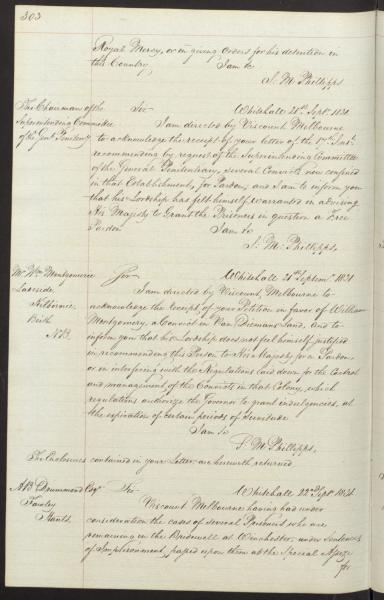 303
Royal Mercy, or in giving Orders for his detention in
this Country. I am &c
S. M. Phillipps
The Chairman of the
Superintending Committee
of the Genl Penitenty
Sir Whitehall 21st Sept. 1831
I am directed by Viscount Melbourne
to acknowledge the receipt of your letter of the 17th Inst.
recommending by request of the Superintending Committee
of the General Penitentiary, several Convicts now confined
in that Establishment, for Pardon, and I am to inform you
that his Lordship has felt himself warranted in advising
His Majesty to Grant the Prisoners in question a Free
Pardon I am &c
S. M. Phillipps,
Mr Wm Montgomerie
Lakeside,
Kilbirnie,
Beith
N.B.
Sir Whitehall 21st Septemr. 1831
I am directed by Viscount Melbourne to
acknowledge the Receipt of your Petition in favor of William
Montgomery, a Convict in Van Diemans Land, and to
inform you that his Lordship does not feel himself justified
in recommending this Person to His Majesty for a Pardon,
or in interfering with the Regulations laid down for the Control
and management of the Convicts in that Colony, which
regulations authorize the Governor to grant indulgencies, at
the expiration of certain periods of Servitude
I am &c
S. M. Phillipps,
The Enclosures contained in your Letter are herewith returned
A B Drummond Esqr
Fawley
Hants.
Sir Whitehall 22nd Sept. 1831
Viscount Melbourne having had under
consideration the cases of several Prisoners who are
remaining in the Bridewell at Winchester, under sentences
of Imprisonment, passed upon them at the Special Assize
for